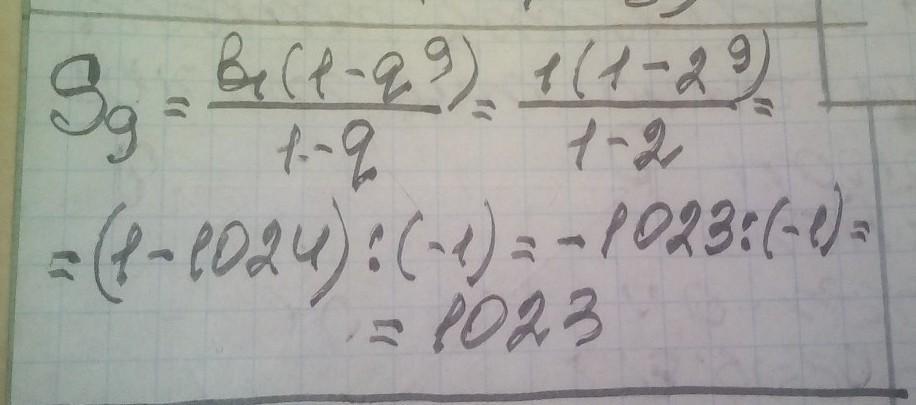 S₉ = b₁(1-q⁹)/1-q = 1(1-2⁹)/1-2 =
= (1-1024):(-1) = -1023:(-1) =
= 1023